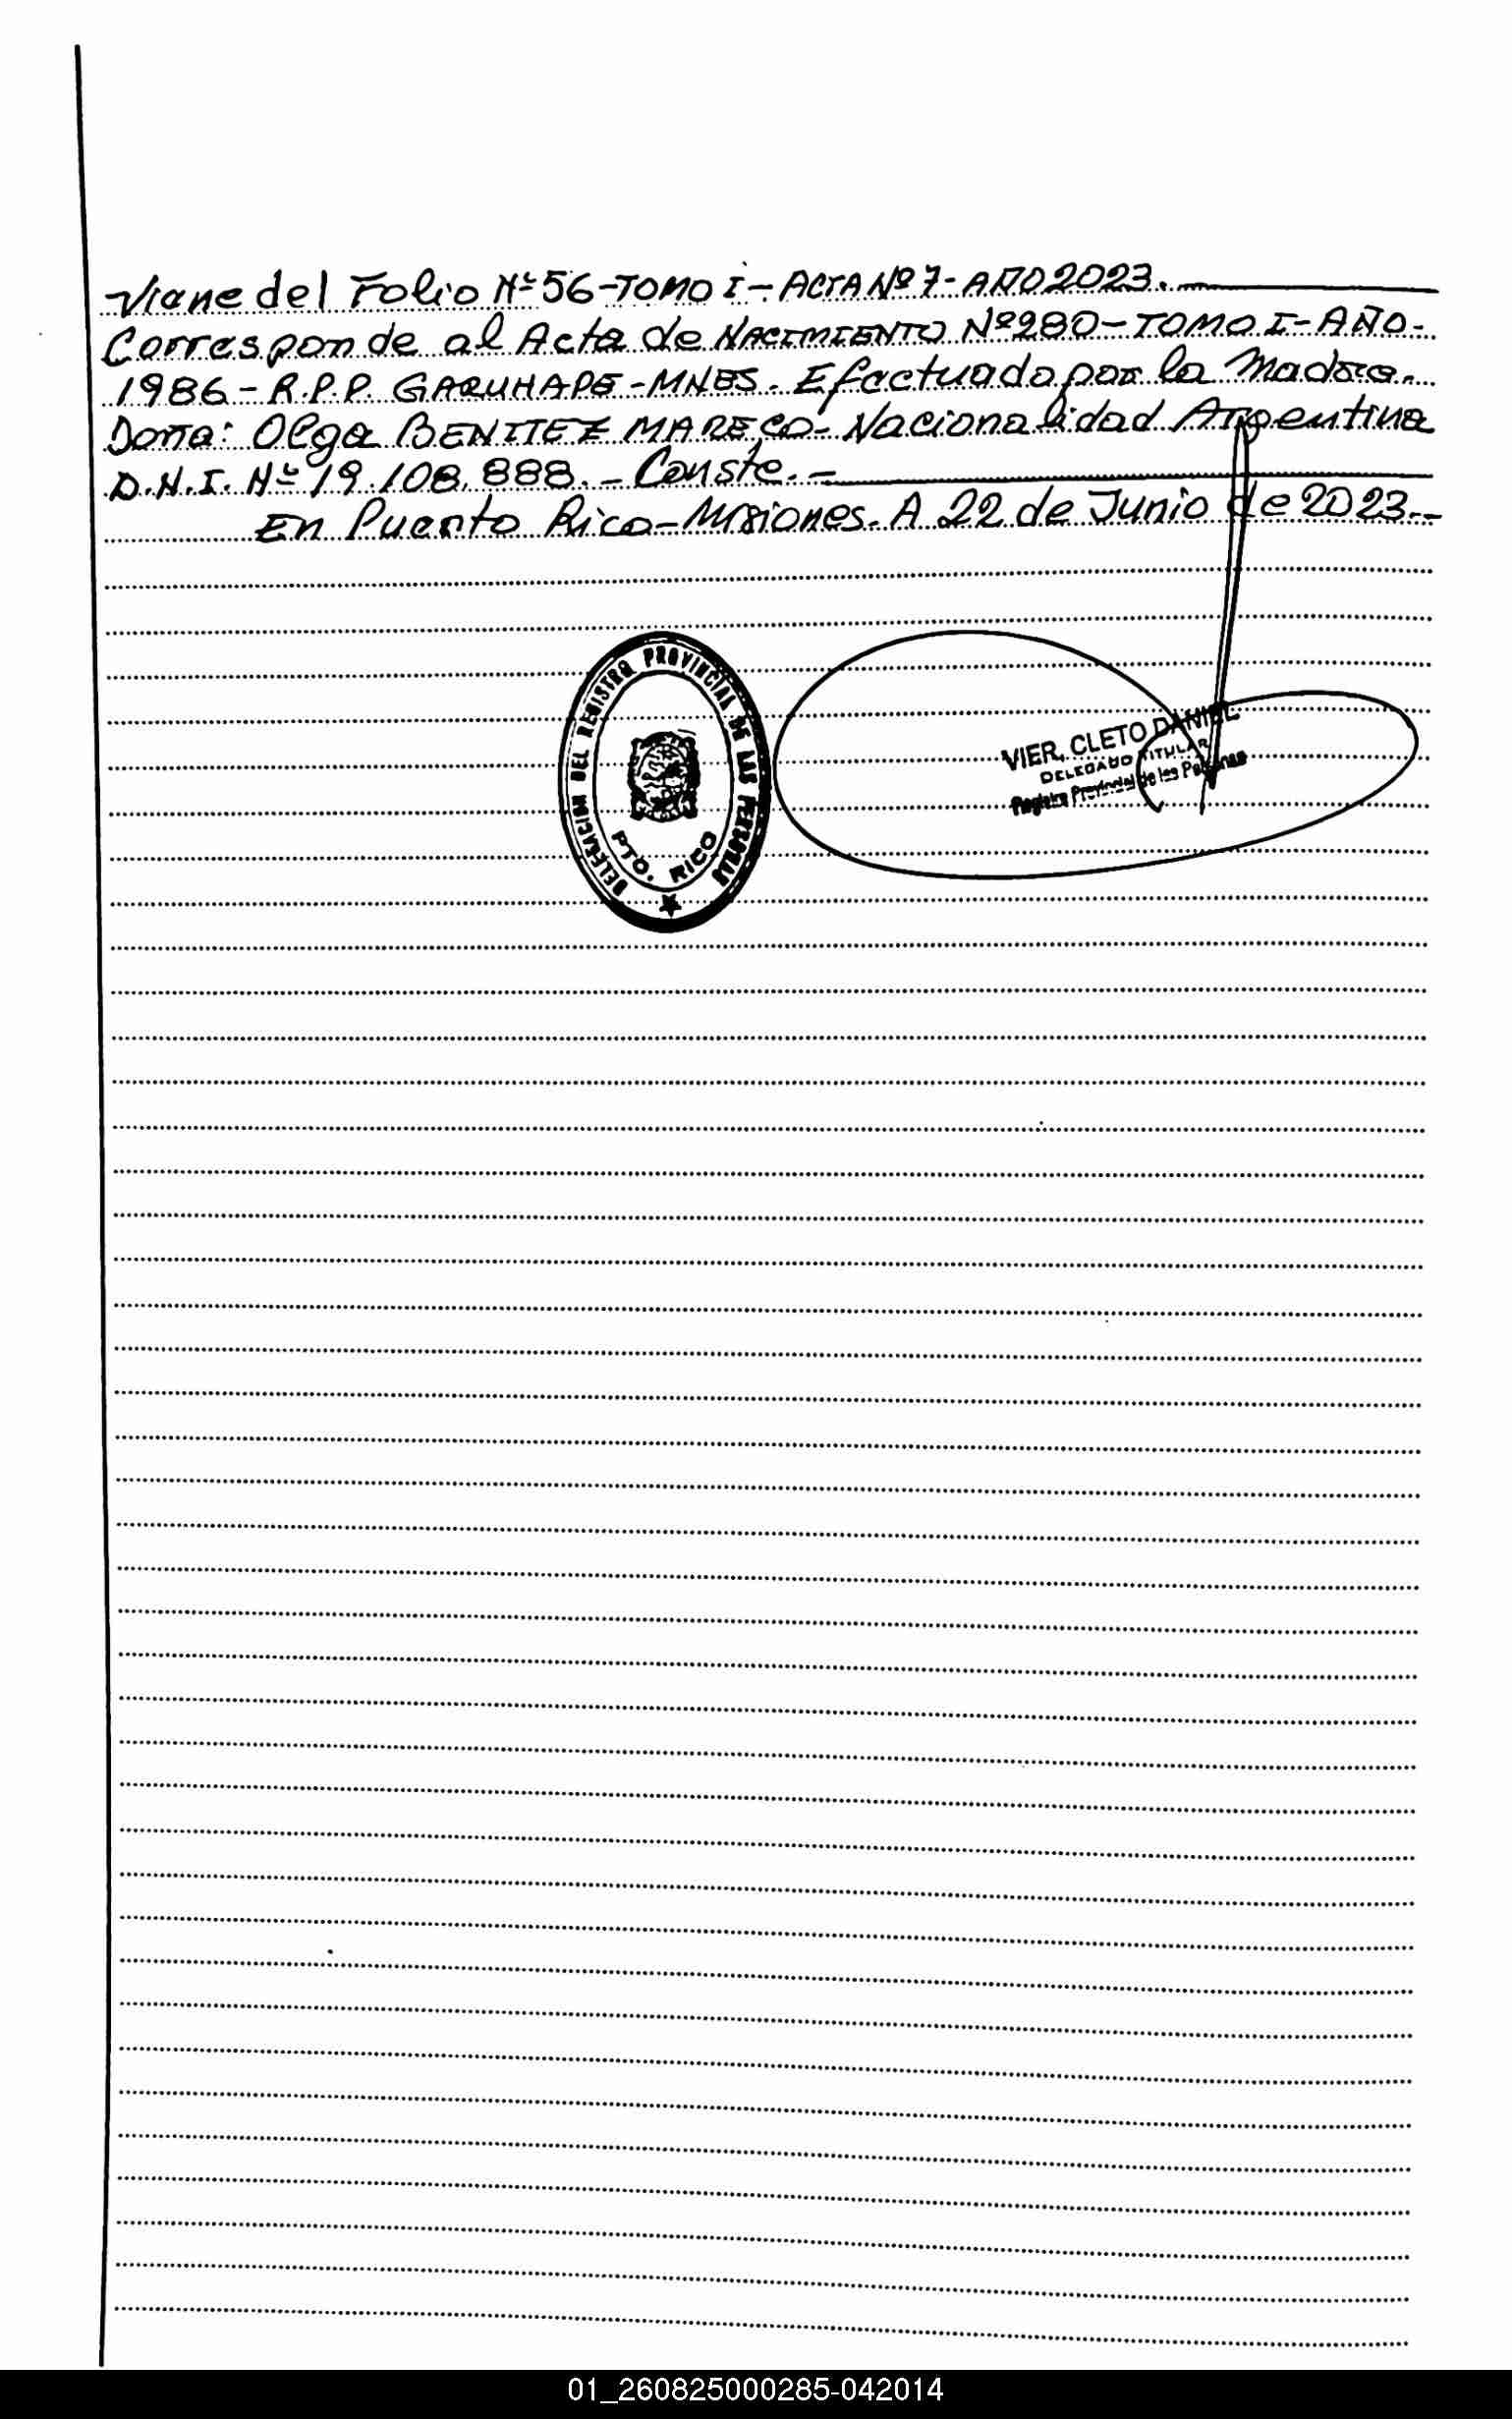 Viene del Folio Nº 56-TOMO I- ACTA Nº 7- AÑO 2023.
Corresponde al Acta de NACIMIENTO Nº 280- TOMO I- AÑO-
1986- R.P.P. GARUHAPE-MNES. Efectuado por la Madre.
Doña: Olga BENITEZ MARECO- Nacionalidad Argentina
D.N.I. Nº 19.108.888.- Conste.-
En Puerto Rico-Misiones. A 22 de Junio de 2023.-
DELEGACION DEL REGISTRO PROVINCIAL DE LAS PERSONAS
PTO. RICO
VIER, CLETO DANIEL
DELEGADO TITULAR
Registro Provincial de las Personas
01_260825000285-042014